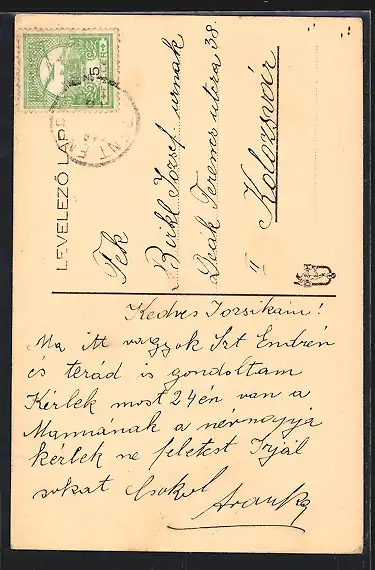 LEVELEZŐ LAP
5
Tek
Birkl József urnak
Deák Ferencz utcza 38.
II Kolozsvár
Kedves Jozsikám!
Ma itt vagyok Szt Endrén
és terád is gondoltam
Kérlek most 24én van a
Mamának a névnapja
kérlek ne feletest Irjál
sokat Csokol
Aranka